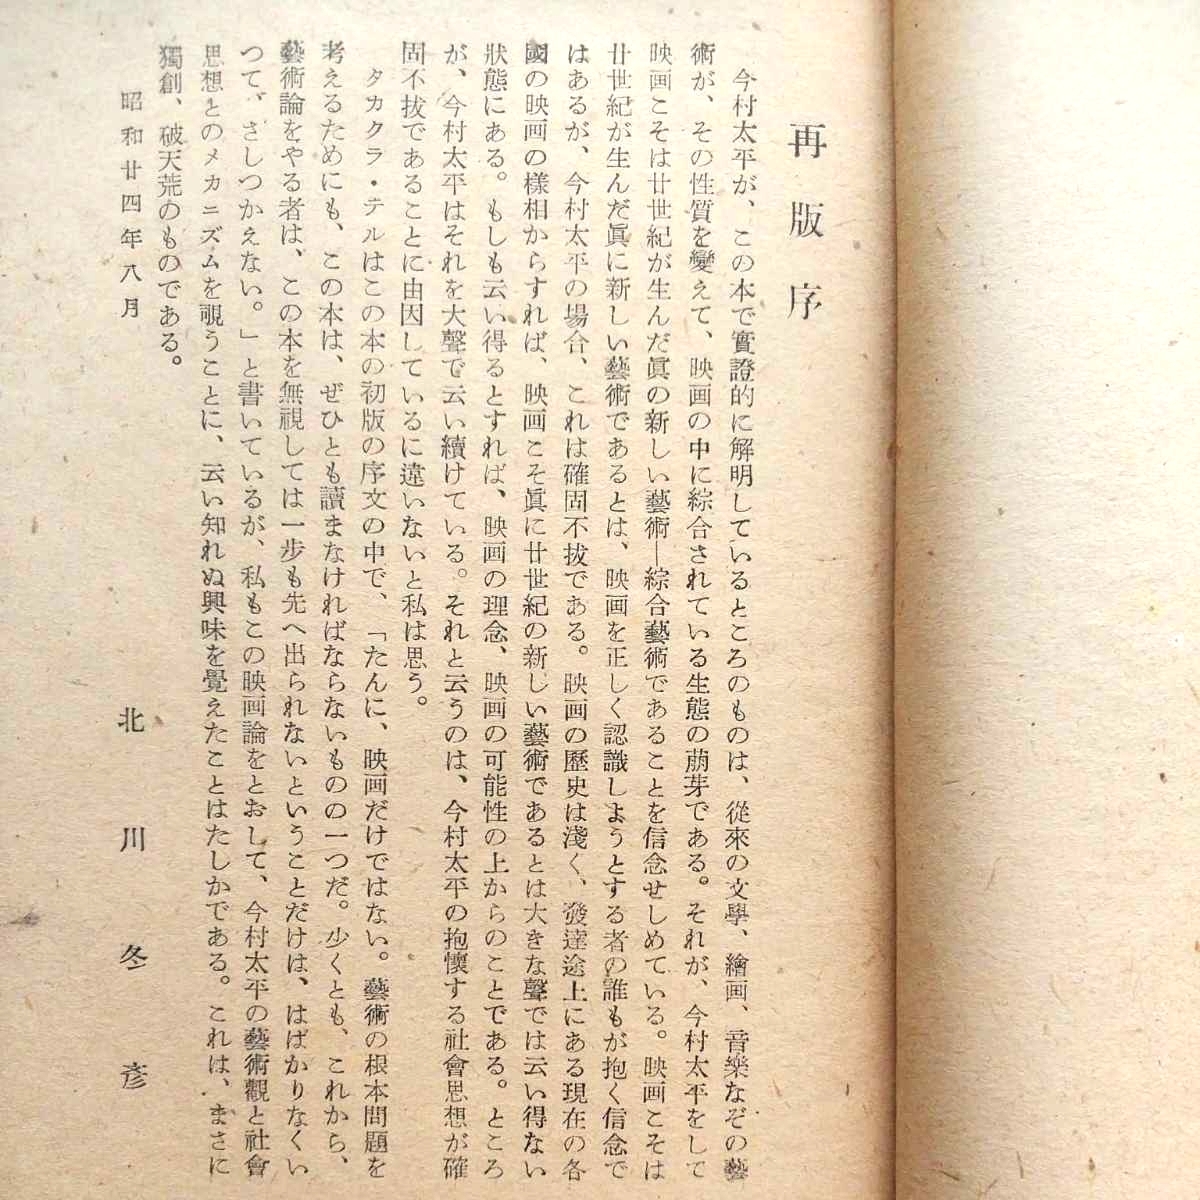 再版序
今村太平が、この本で實證的に解明しているところのものは、從來の文學、繪画、音樂なぞの藝
術が、その性質を變えて、映画の中に綜合されている生態の萠芽である。それが、今村太平をして
映画こそは廿世紀が生んだ眞の新しい藝術―綜合藝術であることを信念せしめている。映画こそは
廿世紀が生んだ眞に新しい藝術であるとは、映画を正しく認識しようとする者の誰もが抱く信念で
はあるが、今村太平の場合、これは確固不拔である。映画の歷史は淺く、發達途上にある現在の各
國の映画の樣相からすれば、映画こそ眞に廿世紀の新しい藝術であるとは大きな聲では云い得ない
狀態にある。もしも云い得るとすれば、映画の理念、映画の可能性の上からのことである。ところ
が、今村太平はそれを大聲で云い續けている。それと云うのは、今村太平の抱懷する社會思想が確
固不拔であることに由因しているに違いないと私は思う。
タカクラ・テルはこの本の初版の序文の中で、「たんに、映画だけではない。藝術の根本問題を
考えるためにも、この本は、ぜひとも讀まなければならないものの一つだ。少くとも、これから、
藝術論をやる者は、この本を無視しては一步も先へ出られないということだけは、はばかりなくい
つて、さしつかえない。」と書いているが、私もこの映画論をとおして、今村太平の藝術觀と社會
思想とのメカニズムを覗うことに、云い知れぬ興味を覺えたことはたしかである。これは、まさに
獨創、破天荒のものである。
昭和廿四年八月
北川冬彥